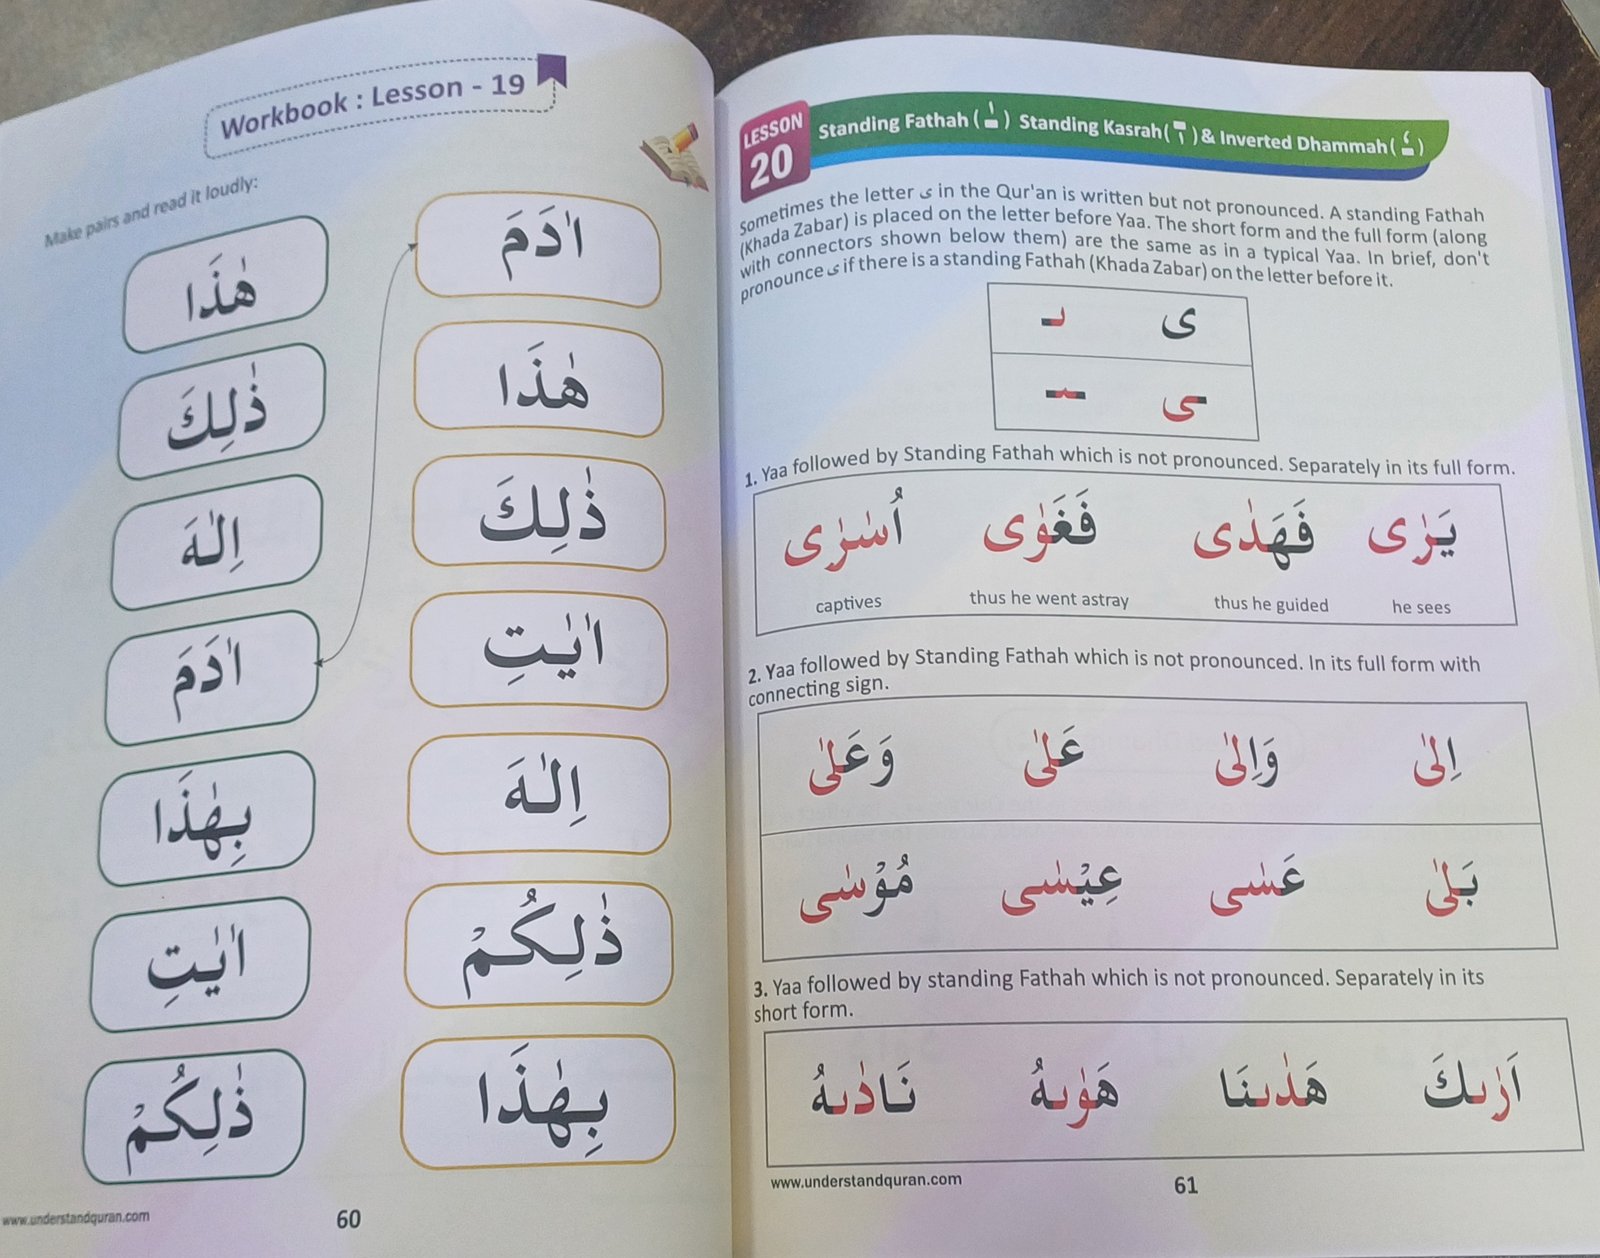 Workbook : Lesson - 19
Make pairs and read it loudly:
هٰذَا
اٰدَمَ
ذٰلِكَ
هٰذَا
اِلٰهَ
ذٰلِكَ
اٰدَمَ
اٰيٰتِ
بِهٰذَا
اِلٰهَ
اٰيٰتِ
ذٰلِكُمْ
ذٰلِكُمْ
بِهٰذَا
www.understandquran.com
60
LESSON
20
Standing Fathah ( ــٰ ) Standing Kasrah( ــٖ ) & Inverted Dhammah( ــٗ )
Sometimes the letter ى in the Qur'an is written but not pronounced. A standing Fathah
(Khada Zabar) is placed on the letter before Yaa. The short form and the full form (along
with connectors shown below them) are the same as in a typical Yaa. In brief, don't
pronounce ى if there is a standing Fathah (Khada Zabar) on the letter before it.
ى ىـ
ـى ـىـ
1. Yaa followed by Standing Fathah which is not pronounced. Separately in its full form.
يَرٰى فَهَدٰى فَغَوٰى اُسٰرٰى
captives thus he went astray thus he guided he sees
2. Yaa followed by Standing Fathah which is not pronounced. In its full form with
connecting sign.
اِلىٰ وَاِلىٰ عَلىٰ وَعَلىٰ
بَلىٰ عَسٰى عِيْسٰى مُوْسٰى
3. Yaa followed by standing Fathah which is not pronounced. Separately in its
short form.
اَرٰىكَ هَدٰىنَا هَوٰىهُ نَادٰىهُ
www.understandquran.com
61